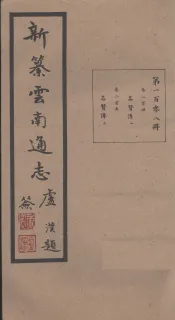 新纂雲南通志
盧漢題
签
第一百零八冊
名賢傳一
名賢傳二